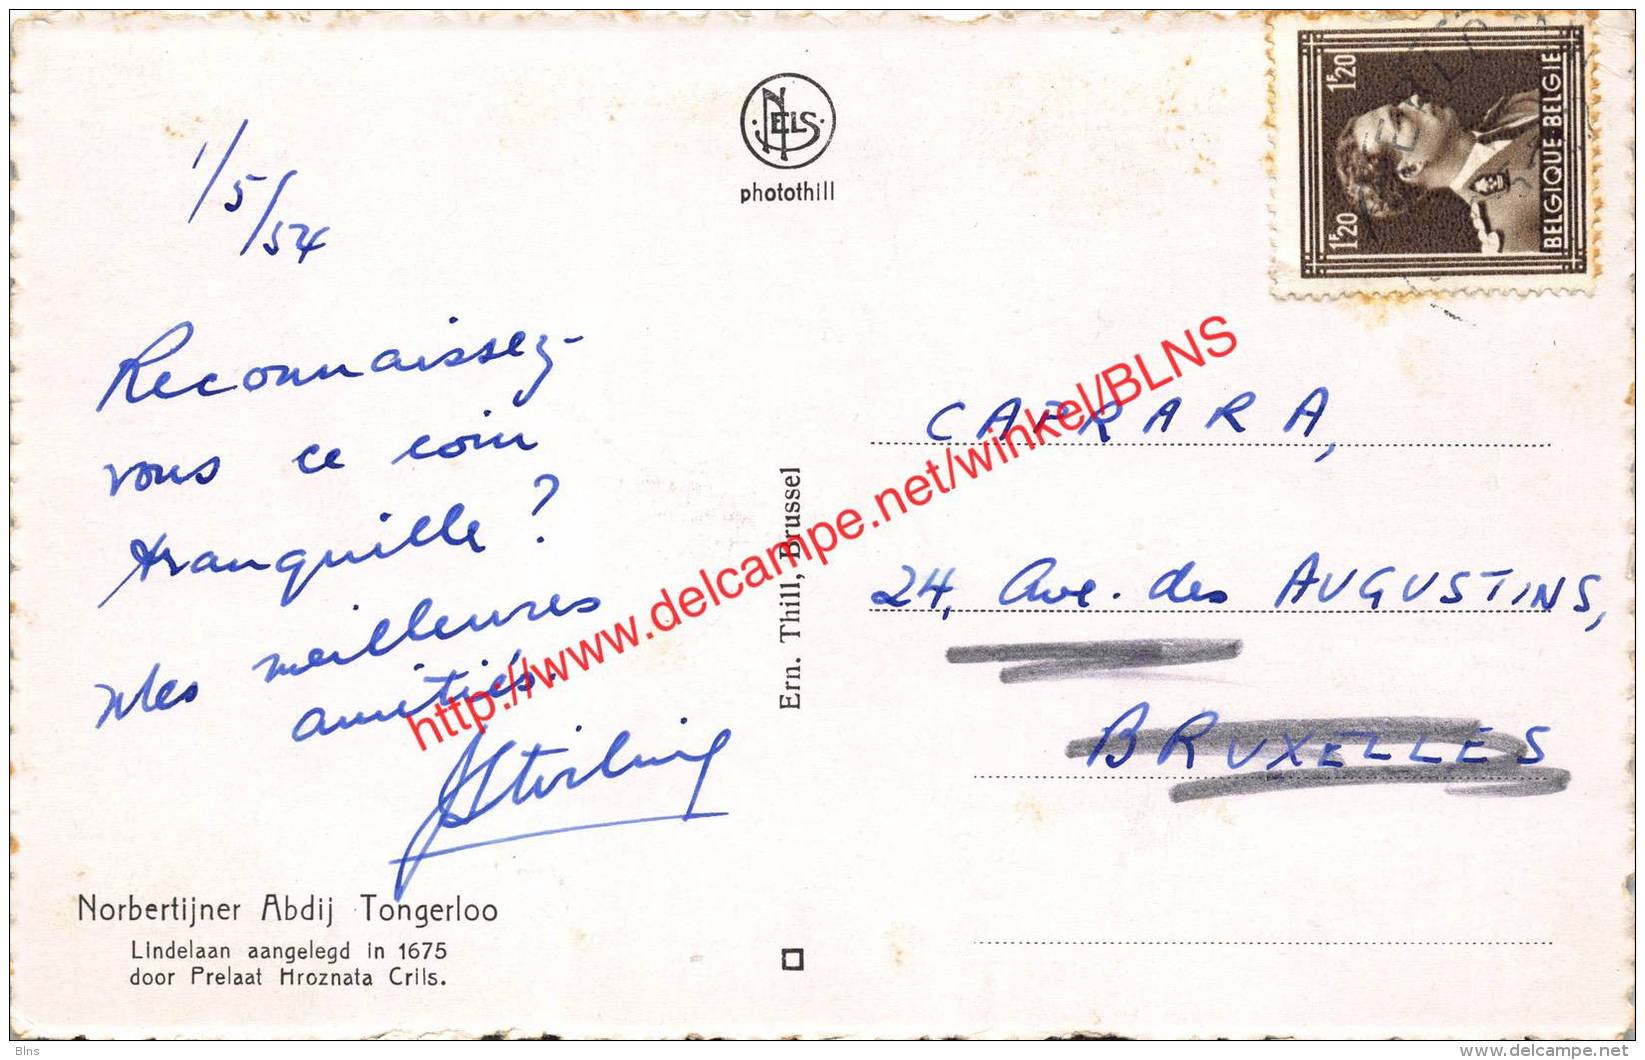 1/5/54
Reconnaissez-
vous ce coin
tranquille?
Mes meilleures
amitiés.
JStirling
Norbertijner Abdij Tongerloo
Lindelaan aangelegd in 1675
door Prelaat Hroznata Crils.
NELS
photothill
Ern. Thill, Brussel
1F20
1F20
BELGIQUE-BELGIE
CAPRARA,
24, Ave. des AUGUSTINS,
BRUXELLES
http://www.delcampe.net/winkel/BLNS
Blns
www.delcampe.net